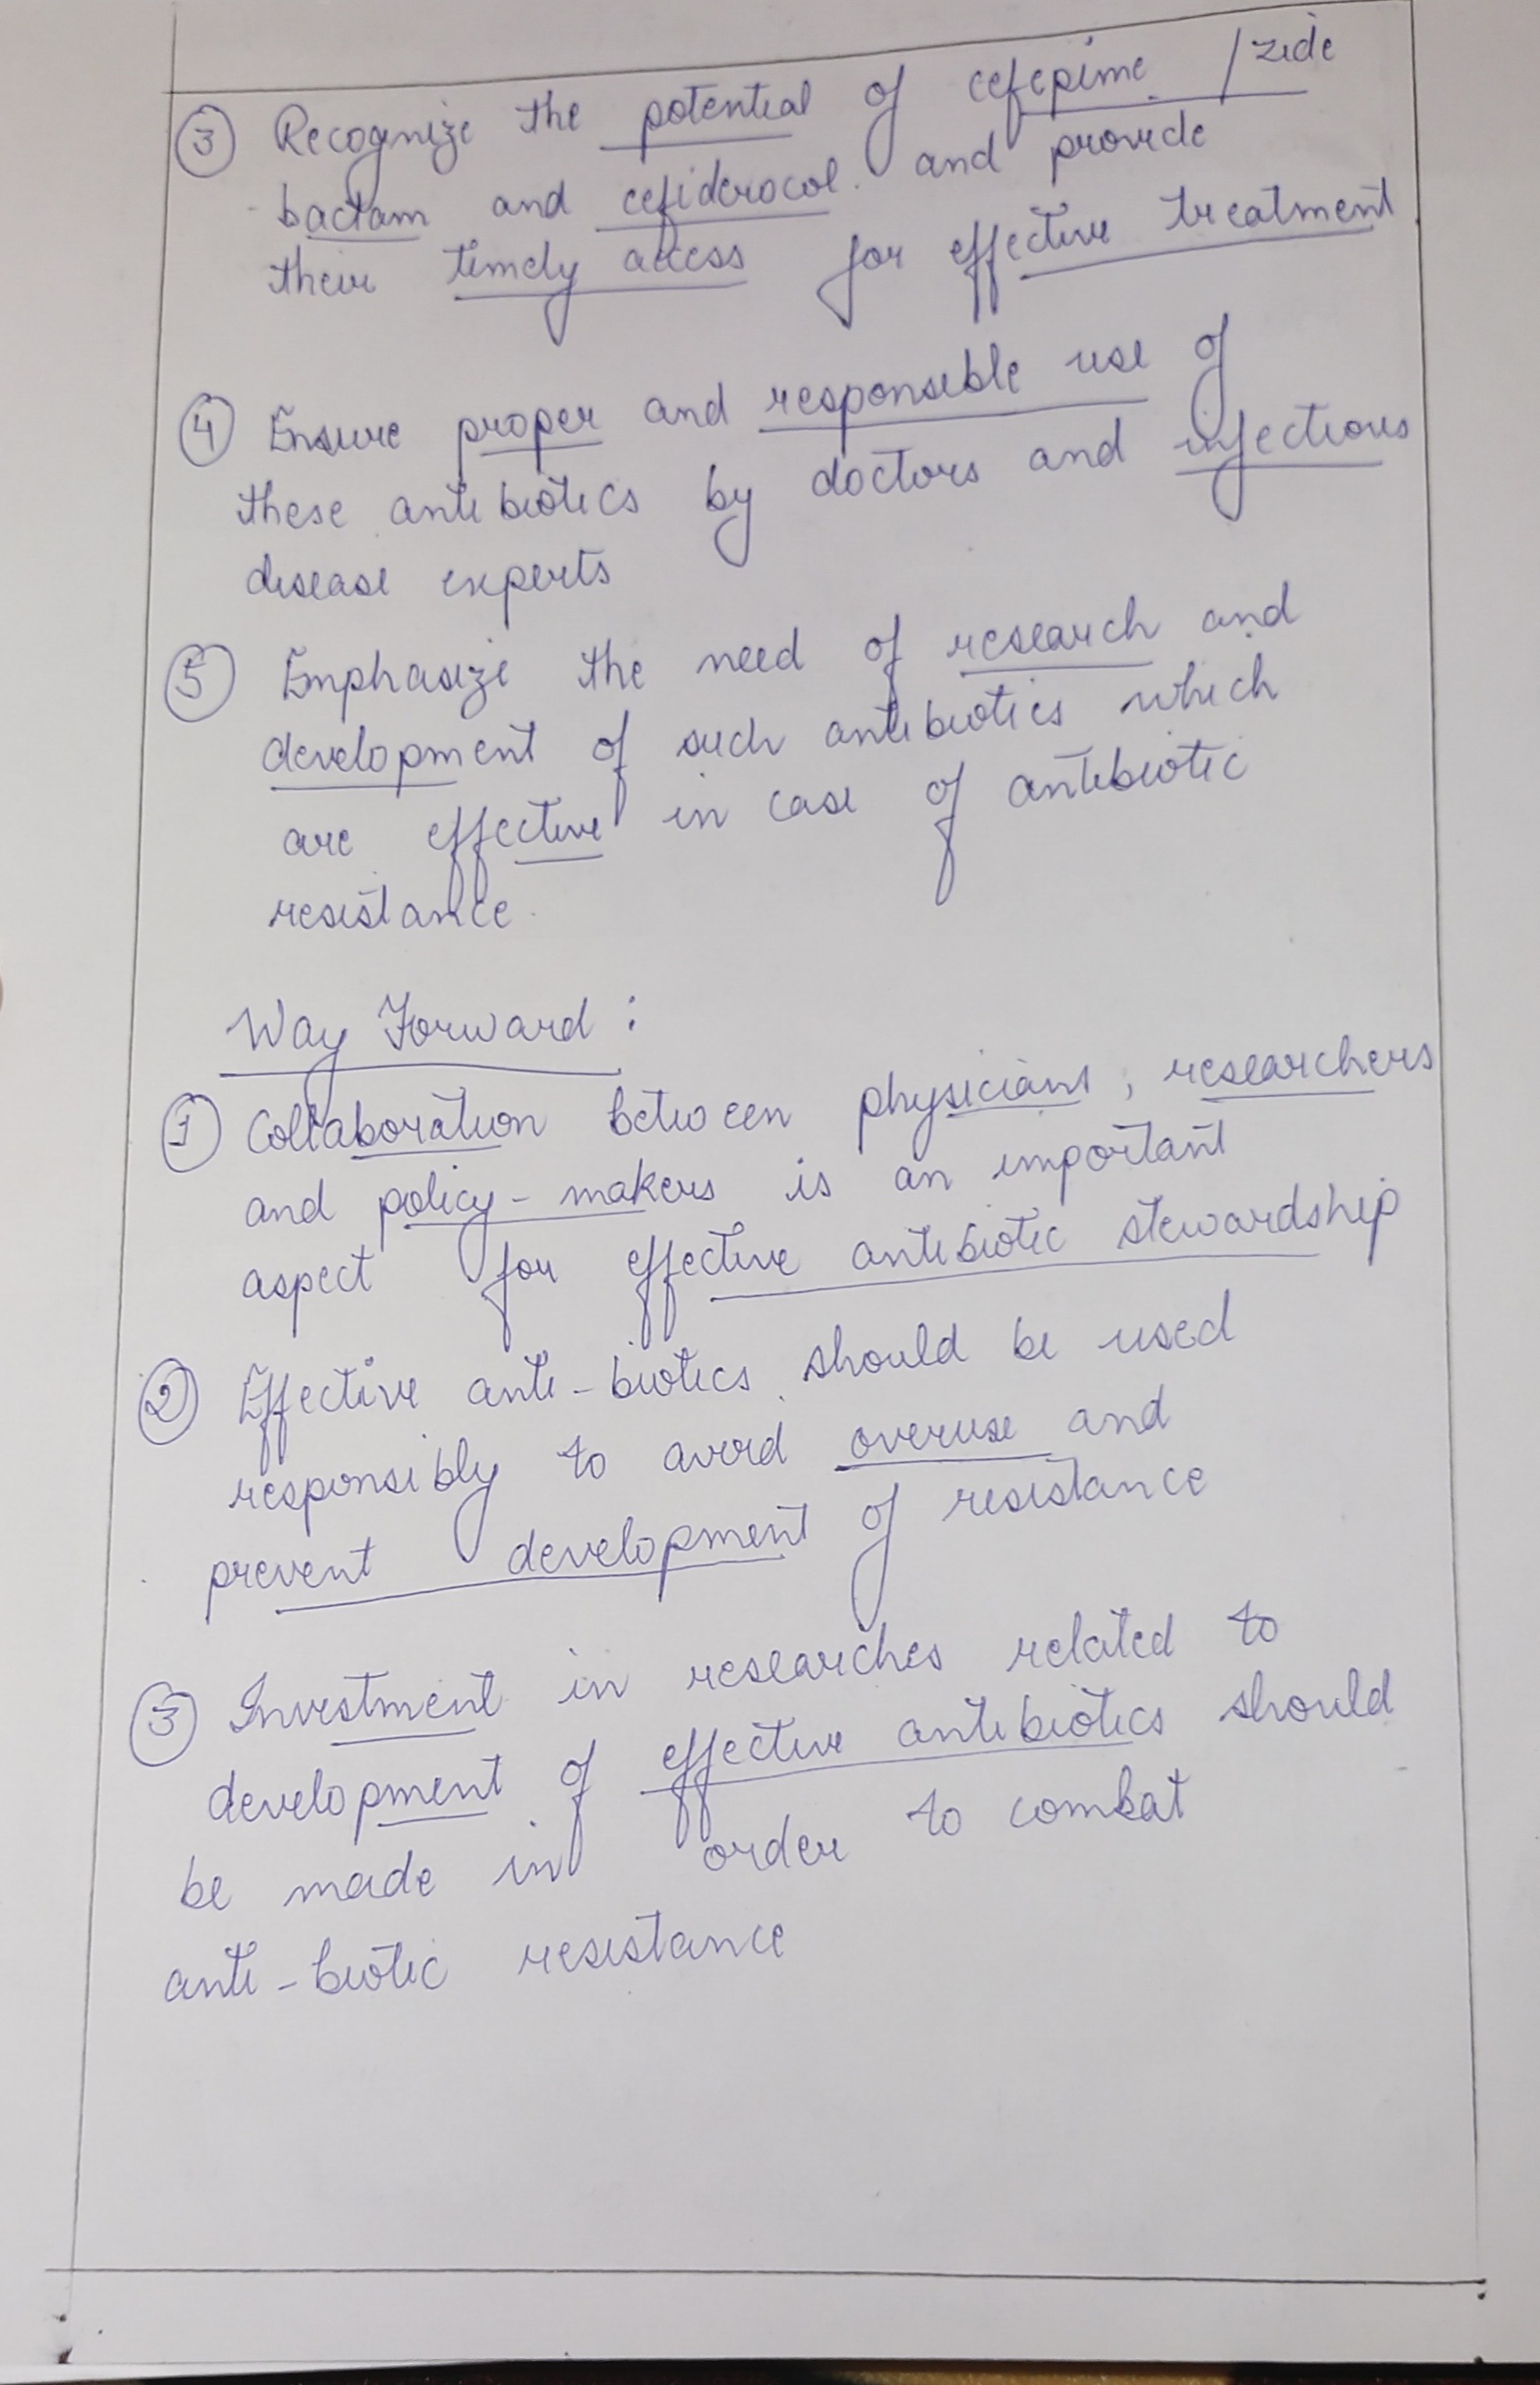 ③ Recognize the potential of cefepime / zide
bactam and cefiderocol and provide
their timely access for effective treatment.
④ Ensure proper and responsible use of
these antibiotics by doctors and infectious
disease experts
⑤ Emphasize the need of research and
development of such antibiotics which
are effective in case of antibiotic
resistance.
Way Forward :
① Collaboration between physicians, researchers
and policy-makers is an important
aspect for effective antibiotic stewardship
② Effective anti-biotics should be used
responsibly to avoid overuse and
prevent development of resistance
③ Investment in researches related to
development of effective antibiotics should
be made in order to combat
anti-biotic resistance